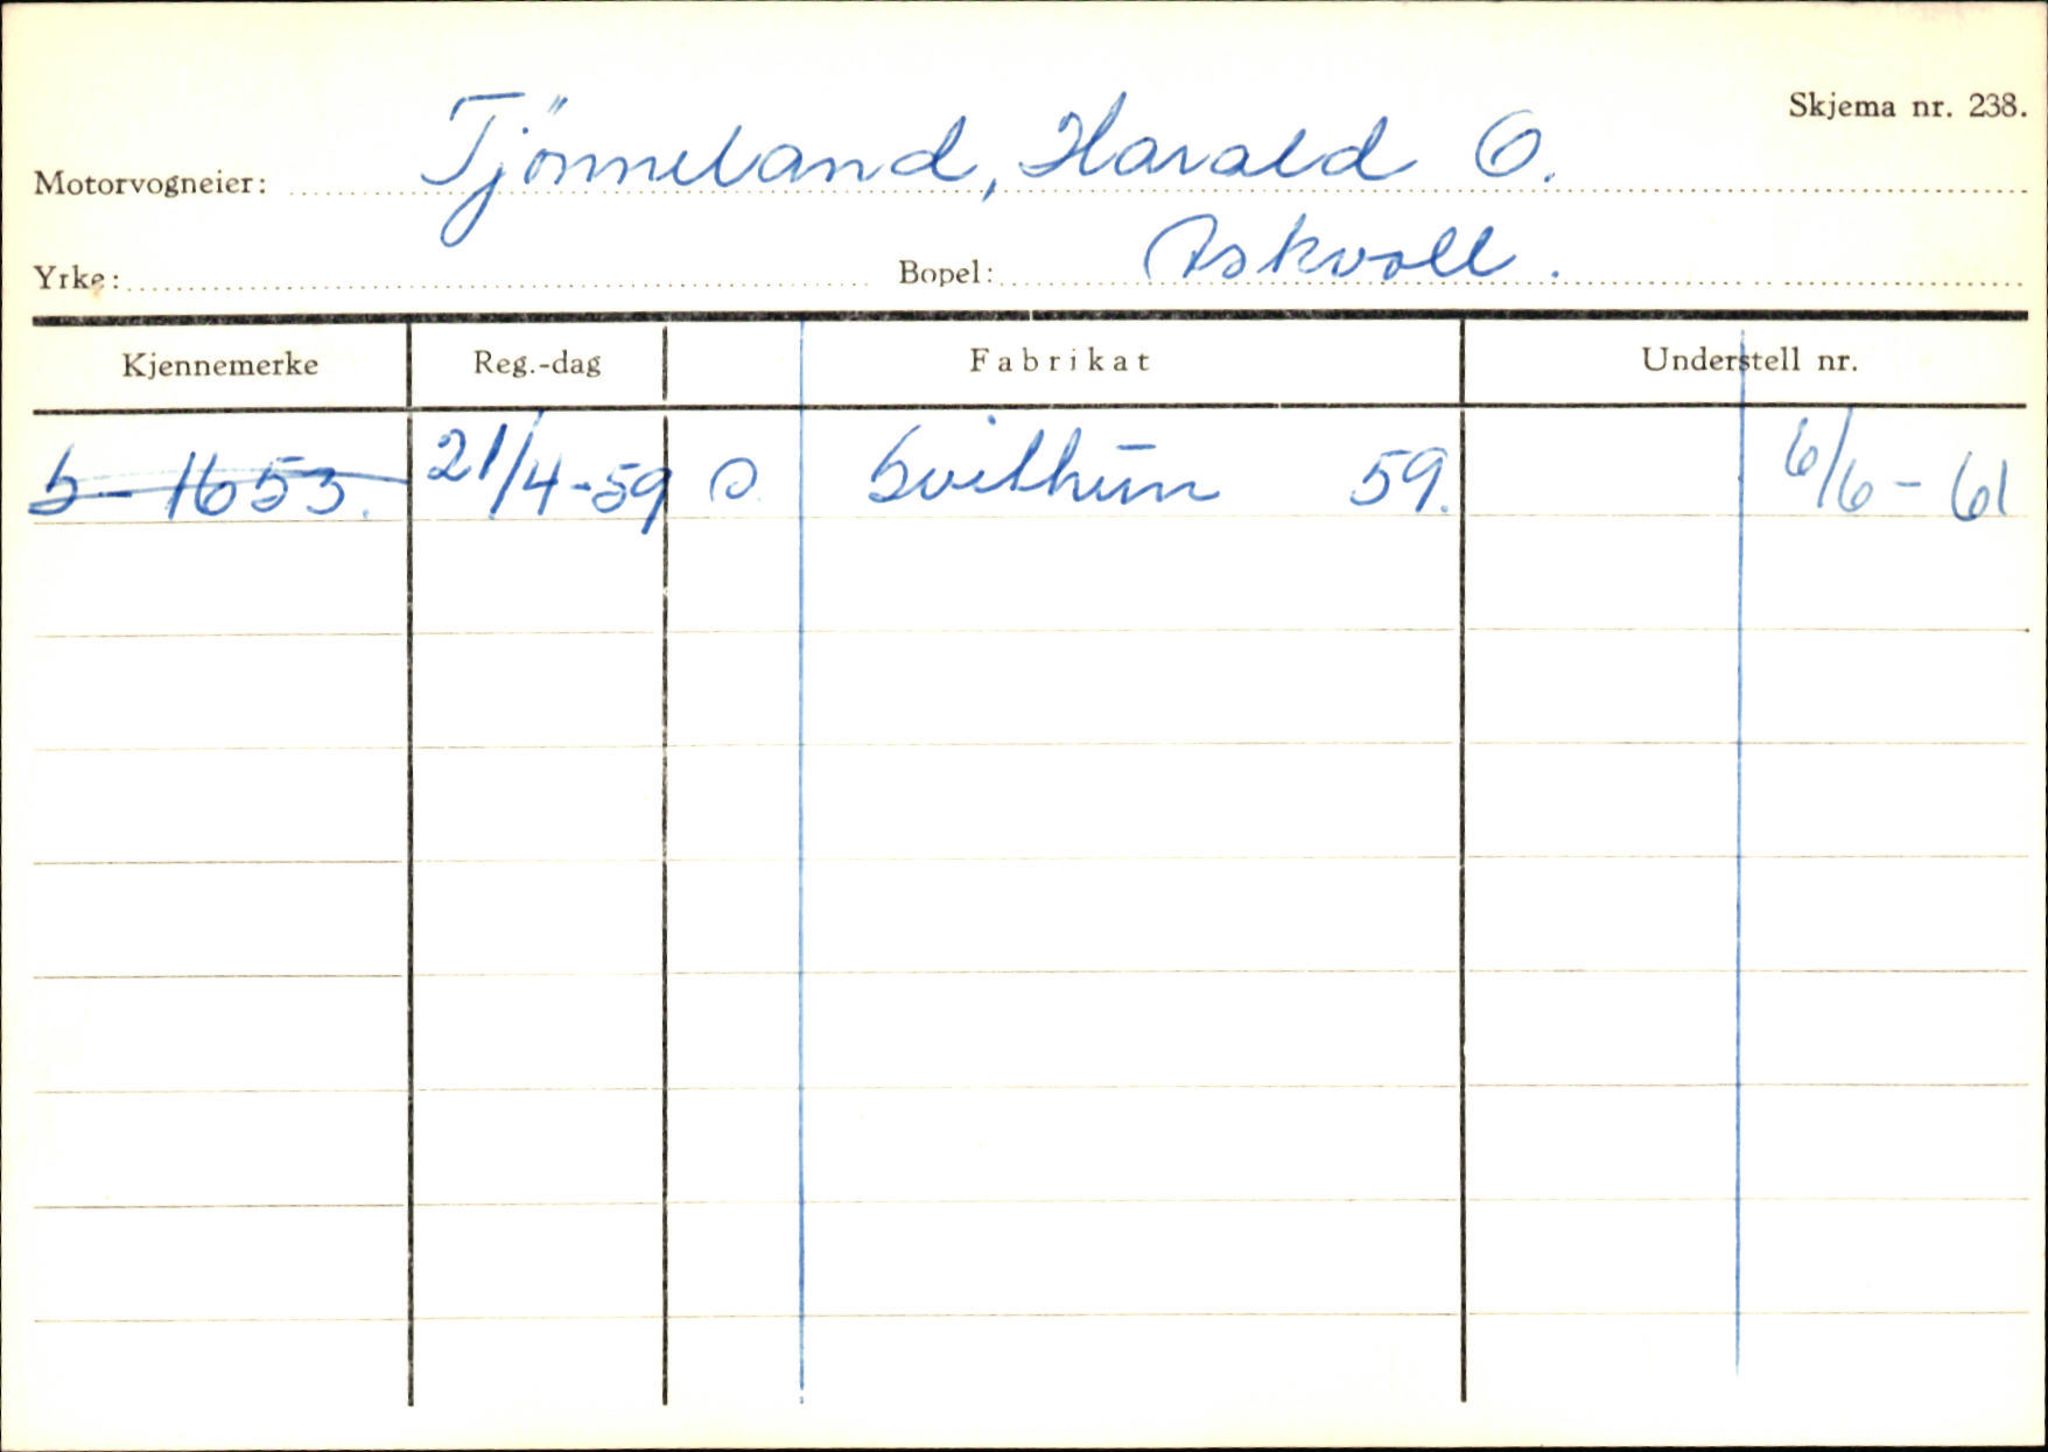 Skjema nr. 238.
Motorvogneier: Tjönneland, Harald O.
Yrke: Bopel: Askvoll.
Kjennemerke Reg.-dag Fabrikat Understell nr.
S-1653. 21/4-59 O Svithun 59. 6/6-61